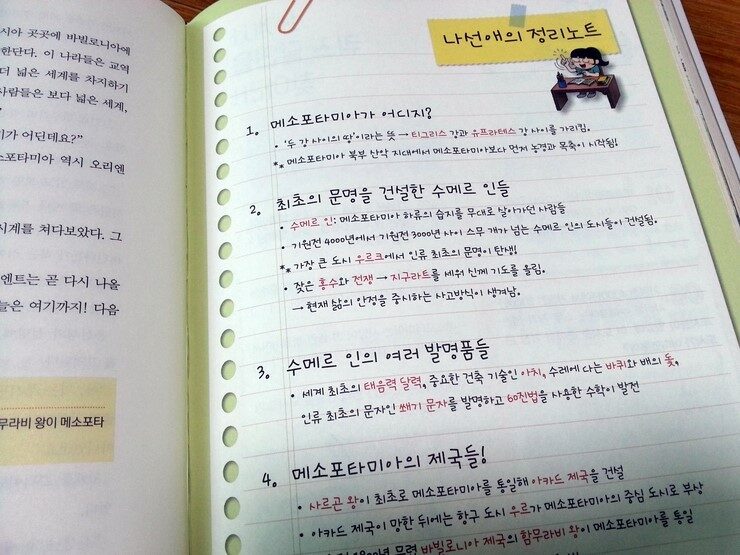 시아 곳곳에 바빌로니아에
한단다. 이 나라들은 교역
더 넓은 세계를 차지하기
사람들은 보다 넓은 세계,
가 어딘데요?”
소포타미아 역시 오리엔
시계를 쳐다보았다. 그
엔트는 곧 다시 나올
늘은 여기까지! 다음
무라비 왕이 메소포타
나선애의 정리노트
1. 메소포타미아가 어디지?
• ‘두 강 사이의 땅’이라는 뜻 → 티그리스 강과 유프라테스 강 사이를 가리킴.
** 메소포타미아 북부 산악 지대에서 메소포타미아보다 먼저 농경과 목축이 시작됨!
2. 최초의 문명을 건설한 수메르 인들
• 수메르 인: 메소포타미아 하류의 습지를 무대로 살아가던 사람들
• 기원전 4000년에서 기원전 3000년 사이 스무 개가 넘는 수메르 인의 도시들이 건설됨.
** 가장 큰 도시 우르크에서 인류 최초의 문명이 탄생!
• 잦은 홍수와 전쟁 → 지구라트를 세워 신께 기도를 올림.
→ 현재 삶의 안정을 중시하는 사고방식이 생겨남.
3. 수메르 인의 여러 발명품들
• 세계 최초의 태음력 달력, 중요한 건축 기술인 아치, 수레에 다는 바퀴와 배의 돛,
인류 최초의 문자인 쐐기 문자를 발명하고 60진법을 사용한 수학이 발전
4. 메소포타미아의 제국들!
• 사르곤 왕이 최초로 메소포타미아를 통일해 아카드 제국을 건설
• 아카드 제국이 망한 뒤에는 항구 도시 우르가 메소포타미아의 중심 도시로 부상
바빌로니아 제국의 함무라비 왕이 메소포타미아를 통일